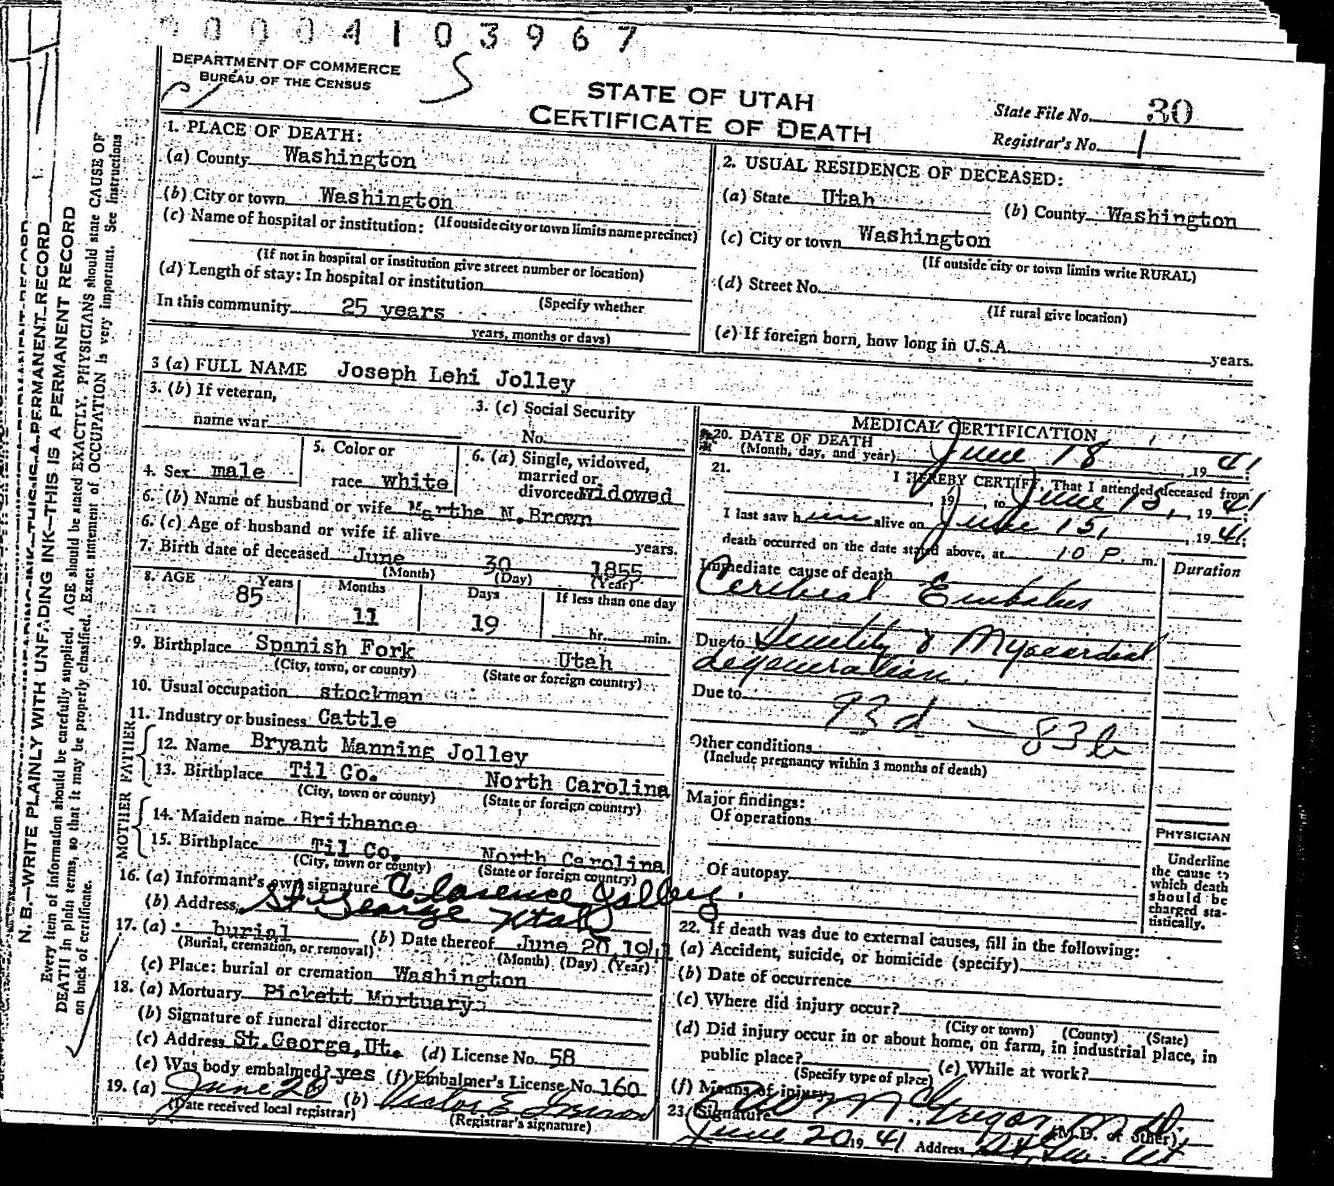 0004103967
DEPARTMENT OF COMMERCE
BUREAU OF THE CENSUS
S
STATE OF UTAH
CERTIFICATE OF DEATH
State File No. 30
Registrar's No. 1
1. PLACE OF DEATH:
(a) County Washington
(b) City or town Washington
(If outside city or town limits name precinct)
(c) Name of hospital or institution:
(If not in hospital or institution give street number or location)
(d) Length of stay: In hospital or institution
(Specify whether
In this community 25 years
years, months or days)
2. USUAL RESIDENCE OF DECEASED:
(a) State Utah (b) County Washington
(c) City or town Washington
(If outside city or town limits write RURAL)
(d) Street No.
(If rural give location)
(e) If foreign born, how long in U.S.A. years.
3 (a) FULL NAME Joseph Lehi Jolley
3. (b) If veteran,
name war
3. (c) Social Security
No.
4. Sex male
5. Color or
race white
6. (a) Single, widowed,
married or
divorced widowed
6. (b) Name of husband or wife Martha N. Brown
6. (c) Age of husband or wife if alive years.
7. Birth date of deceased June 30 1855
(Month) (Day) (Year)
8. AGE Years Months Days If less than one day
85 11 19 hr. min.
9. Birthplace Spanish Fork Utah
(City, town, or county) (State or foreign country)
10. Usual occupation stockman
11. Industry or business Cattle
FATHER
12. Name Bryant Manning Jolley
13. Birthplace Til Co. North Carolina
(City, town or county) (State or foreign country)
MOTHER
14. Maiden name Brithance
15. Birthplace Til Co. North Carolina
(City, town or county) (State or foreign country)
16. (a) Informant's own signature Clarence Jolley
(b) Address St. George Utah
17. (a) burial (b) Date thereof June 20, 1941
(Burial, cremation, or removal) (Month) (Day) (Year)
(c) Place: burial or cremation Washington
18. (a) Mortuary Pickett Mortuary
(b) Signature of funeral director
(c) Address St. George, Ut. (d) License No. 58
(e) Was body embalmed? yes (f) Embalmer's License No. 160
19. (a) June 20 (b) Victor E
(Date received local registrar) (Registrar's signature)
MEDICAL CERTIFICATION
20. DATE OF DEATH
(Month, day, and year) June 18, 1941
21. I HEREBY CERTIFY, That I attended deceased from
19 , to June 15, 1941
I last saw him alive on June 15, 1941
death occurred on the date stated above, at 10 P. m.
Immediate cause of death Duration
Cerebral Embolus
Due to Senility & Myocardial
degeneration
Due to
93d - 83b
Other conditions
(Include pregnancy within 3 months of death)
Major findings:
Of operations
Of autopsy
PHYSICIAN
Underline
the cause to
which death
should be
charged sta-
tistically.
22. If death was due to external causes, fill in the following:
(a) Accident, suicide, or homicide (specify)
(b) Date of occurrence
(c) Where did injury occur?
(City or town) (County) (State)
(d) Did injury occur in or about home, on farm, in industrial place, in
public place? (e) While at work?
(Specify type of place)
(f) Means of injury
23. Signature McGregor M.D. (M.D. or other)
June 20 1941 Address St. Geo. Ut
N. B.—WRITE PLAINLY WITH UNFADING INK—THIS IS A PERMANENT RECORD
Every item of information should be carefully supplied. AGE should be stated EXACTLY. PHYSICIANS should state CAUSE OF
DEATH in plain terms, so that it may be properly classified. Exact statement of OCCUPATION is very important. See instructions
on back of certificate.